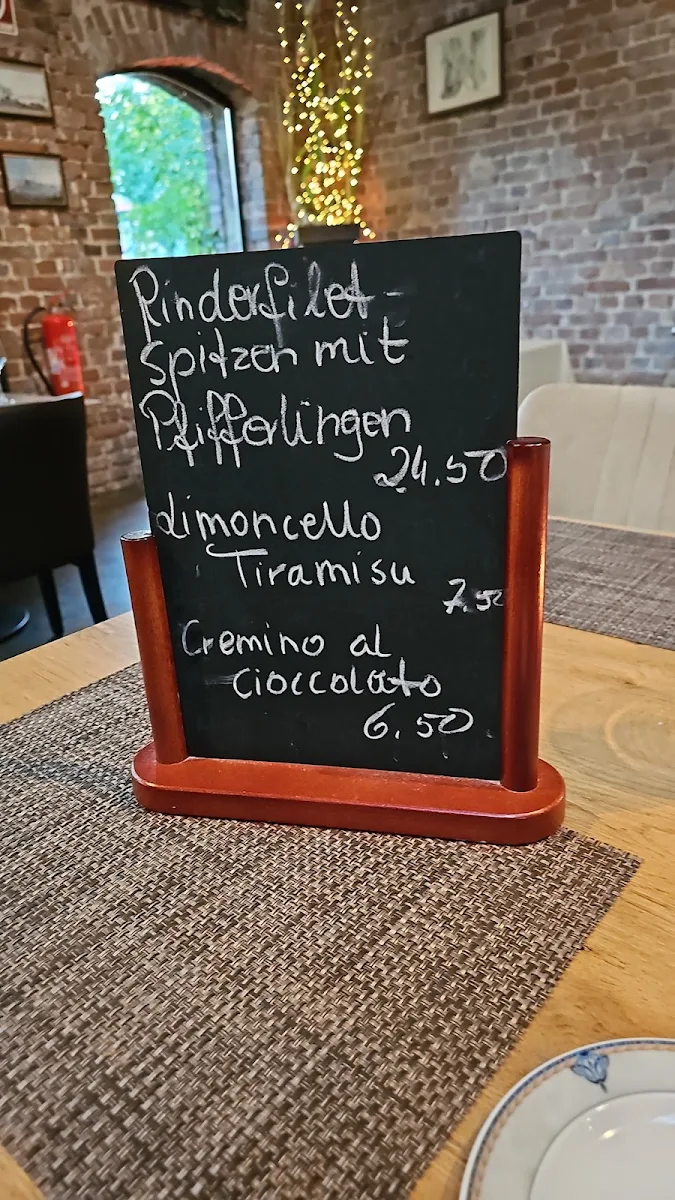 Rinderfilet-
spitzen mit
Pfifferlingen
24.50
Limoncello
Tiramisu
7.50
Cremino al
cioccolato
6.50